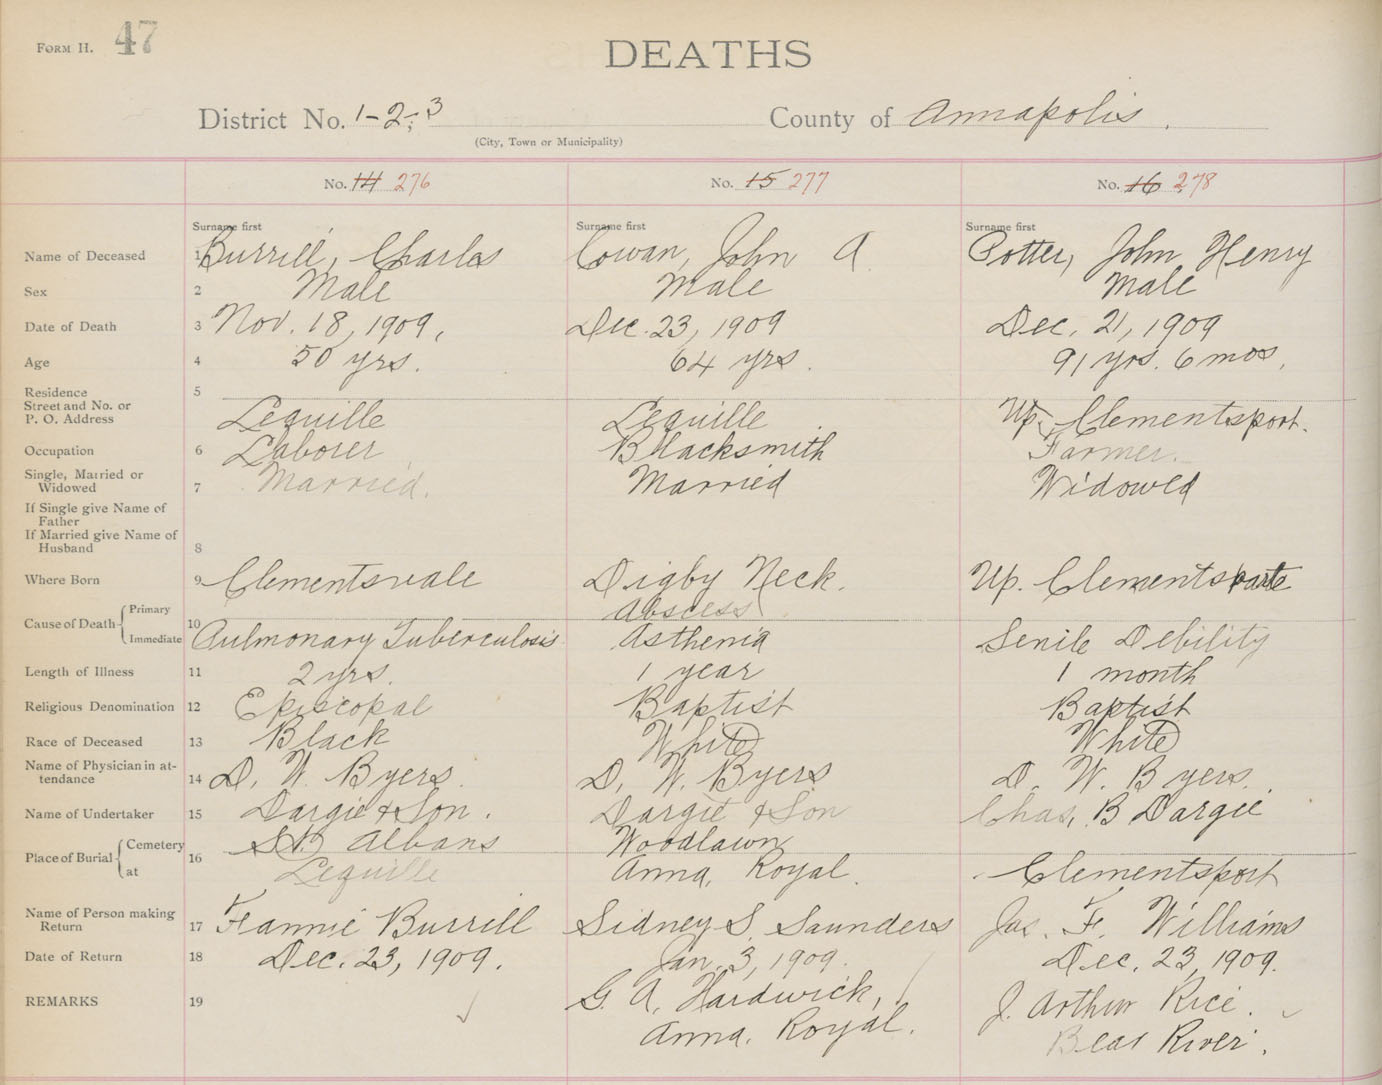 FORM H. 47
DEATHS
District No. 1-2-3 County of Annapolis.
(City, Town or Municipality)
No. 14 276 No. 15 277 No. 16 278
Surname first Surname first Surname first
Name of Deceased 1 Burrill, Charles Cowan, John A. Potter, John Henry
Sex 2 Male Male Male
Date of Death 3 Nov. 18, 1909. Dec. 23, 1909 Dec. 21, 1909
Age 4 50 yrs. 64 yrs. 91 yrs. 6 mos.
Residence 5
Street and No. or
P. O. Address Lequille Lequille Up. Clementsport.
Occupation 6 Laborer Blacksmith Farmer.
Single, Married or
Widowed 7 Married. Married Widowed
If Single give Name of
Father
If Married give Name of
Husband 8
Where Born 9 Clementsvale Digby Neck. Up. Clements
Cause of Death Primary 10 Abscess
Immediate Pulmonary Tuberculosis Asthenia Senile Debility
Length of Illness 11 2 yrs. 1 year 1 month
Religious Denomination 12 Episcopal Baptist Baptist
Race of Deceased 13 Black White White
Name of Physician in at-
tendance 14 D. W. Byers. D. W. Byers D. W. Byers.
Name of Undertaker 15 Dargie & Son. Dargie & Son Chas. B Dargie
Place of Burial Cemetery 16 Albans Woodlawn
at Lequille Anna. Royal. Clementsport
Name of Person making
Return 17 Fannie Burrill Sidney S. Saunders Jas. F. Williams
Date of Return 18 Dec. 23, 1909. Jan. 3, 1909. Dec. 23, 1909.
REMARKS 19 G. A. Hardwick, J. Arthur Rice.
Anna. Royal. Bear River.